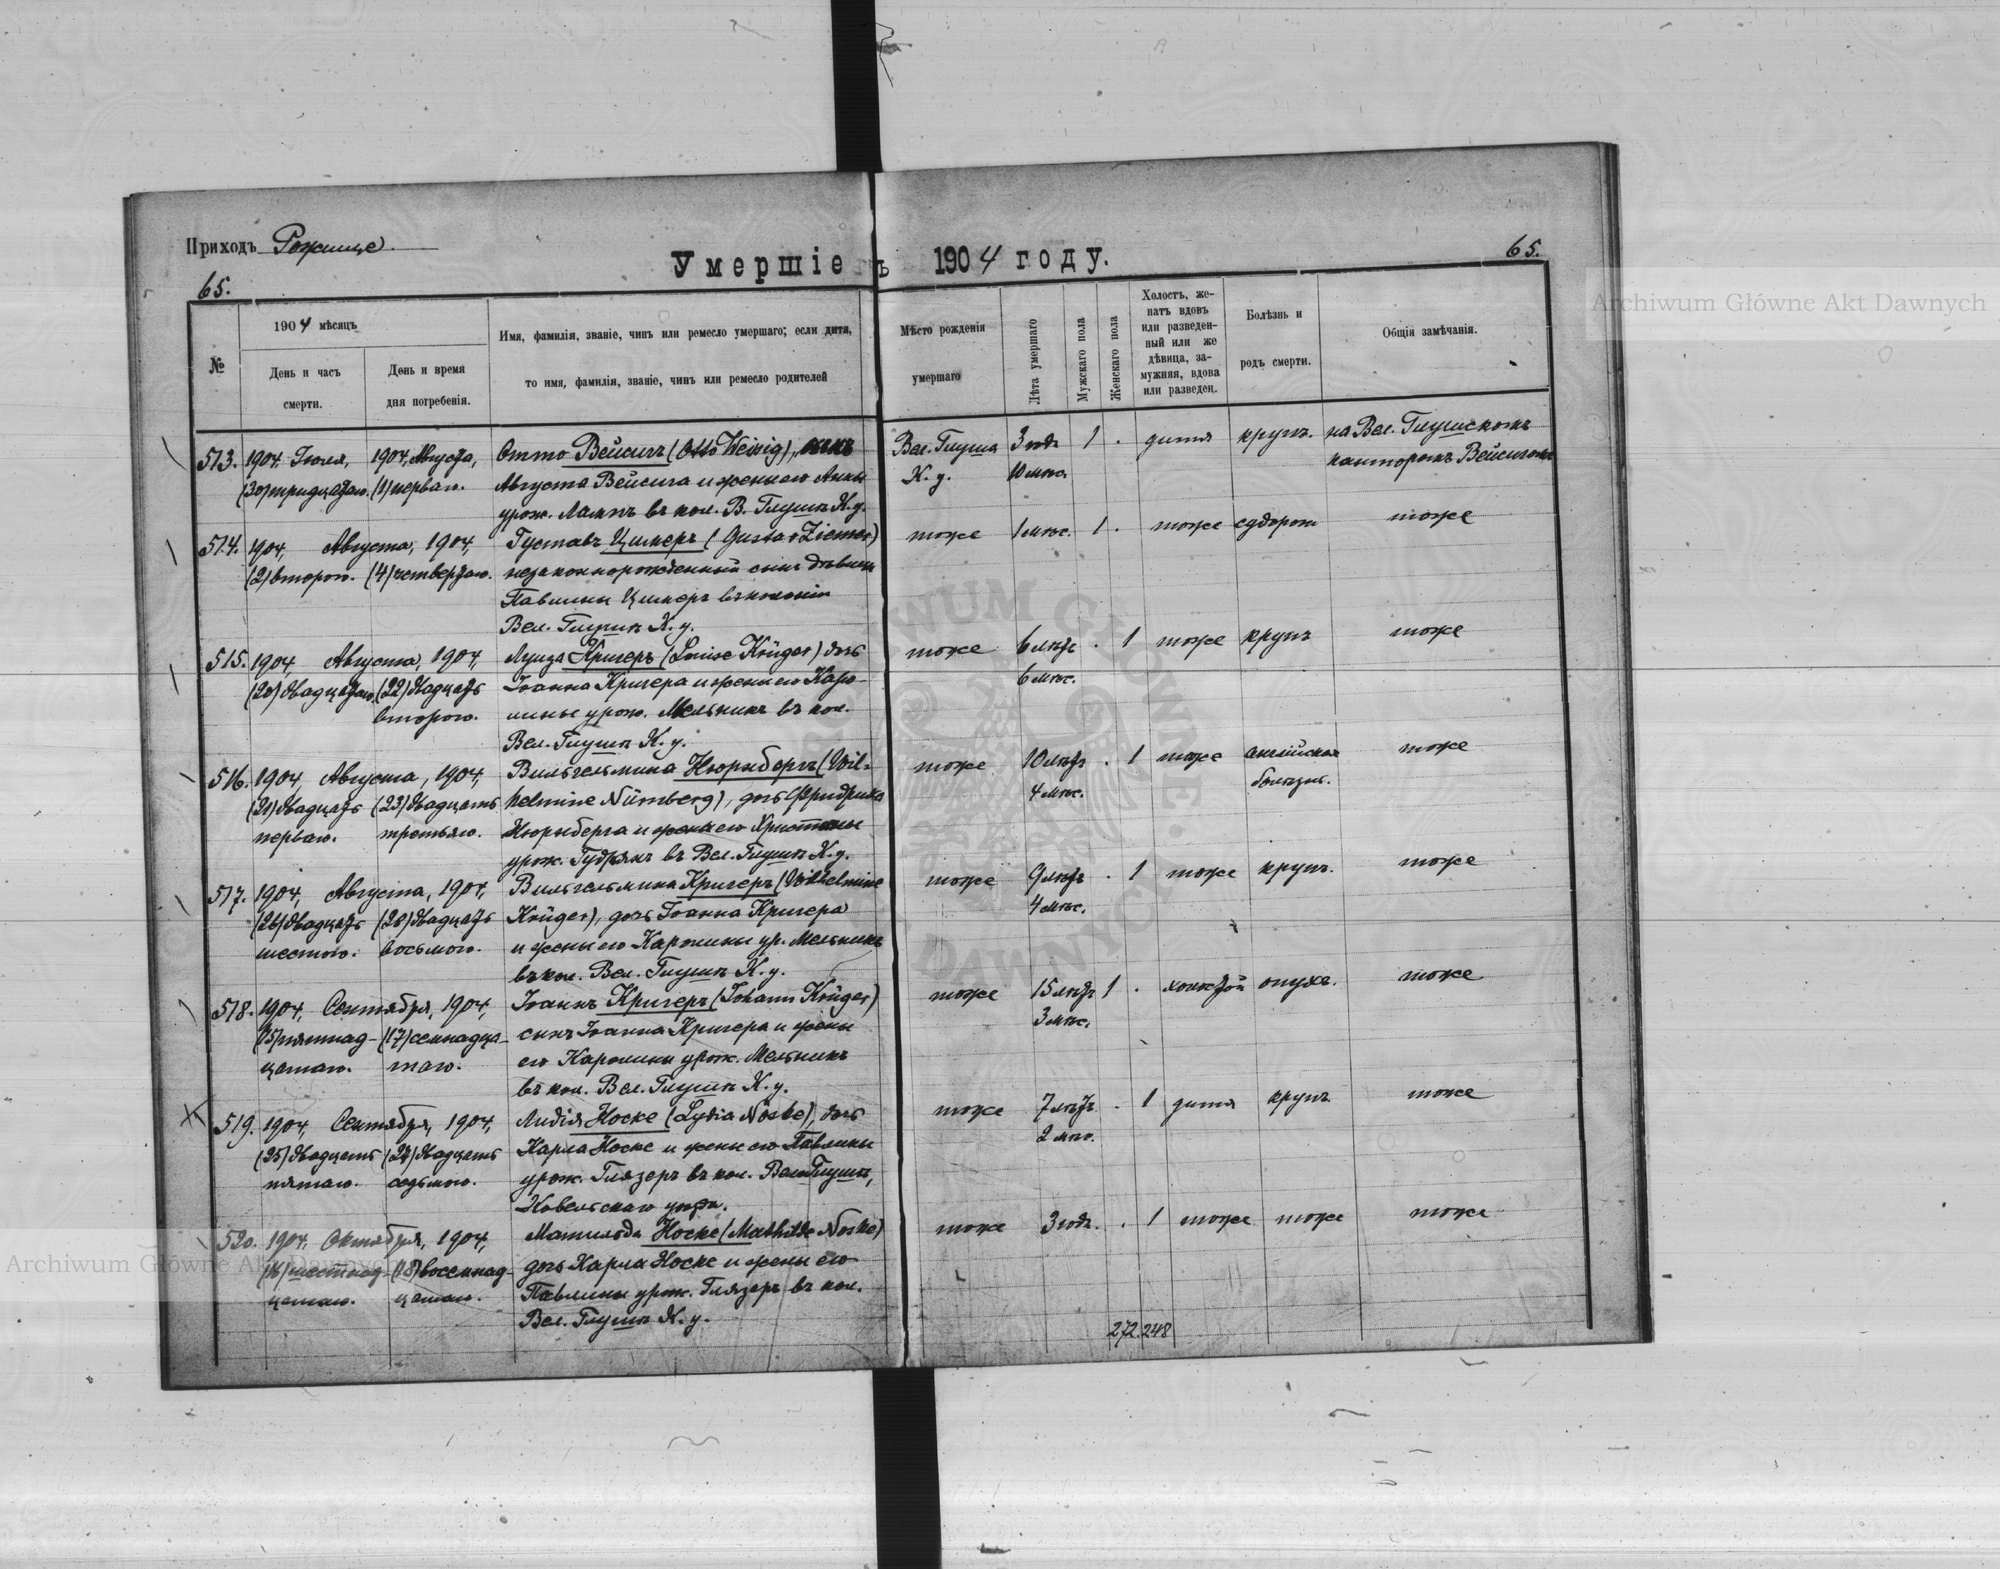 Приходъ Рожище.
Умершіе въ 1904 году.
65.
65.
№
1904 мѣсяцъ
День и часъ
смерти.
День и время
дня погребенія.
Имя, фамилія, званіе, чинъ или ремесло умершаго; если дитя,
то имя, фамилія, званіе, чинъ или ремесло родителей
Мѣсто рожденія
умершаго
Лѣта умершаго
Мужскаго пола
Женскаго пола
Холостъ, же-
натъ вдовъ
или разведен-
ный или же
дѣвица, за-
мужняя, вдова
или разведен.
Болѣзнь и
родъ смерти.
Общія замѣчанія.
513. 1904, Іюля, 1904, Августа, Отто Вейсигъ (Otto Weisig), сынъ Вел. Глуша 3 года 1 . дитя крупъ. на Вел. Глушскомъ
(30) тридцатаго. (1) перваго. Августа Вейсига и жены его Анны К. у. 10 мѣс. канторомъ Вейсигомъ
урож. Лампъ въ кол. В. Глушѣ К. у.
514. 1904, Августа, 1904, Густавъ Цимеръ (Gustav Ziemer) тоже 1 мѣс. 1 . тоже судорож тоже
(2) второго. (4) четвертаго. незаконнорожденный сынъ дѣвицы
Павлины Цимеръ въ колоніи
Вел. Глушѣ К. у.
515. 1904, Августа, 1904, Луиза Кригеръ (Louise Krüger) дочь тоже 6 лѣтъ . 1 тоже крупъ тоже
(20) двадцатаго. (22) двадцать Іоанна Кригера и жены его Каро- 6 мѣс.
второго. лины урож. Мельникъ въ кол.
Вел. Глушѣ К. у.
516. 1904, Августа, 1904, Вильгельмина Нюрнбергъ (Wil- тоже 10 лѣтъ . 1 тоже англійская тоже
(21) двадцать (23) двадцать helmine Nürnberg), дочь Фридриха 4 мѣс. болѣзнь.
перваго. третьяго. Нюрнберга и жены его Христины
урож. Гудрянъ въ Вел. Глушѣ К. у.
517. 1904, Августа, 1904, Вильгельмина Кригеръ (Wilhelmine тоже 9 лѣтъ . 1 тоже крупъ. тоже
(26) двадцать (28) двадцать Krüger), дочь Іоанна Кригера 4 мѣс.
шестого. восьмого. и жены его Каролины ур. Мельникъ
въ кол. Вел. Глушѣ К. у.
518. 1904, Сентября, 1904, Іоаннъ Кригеръ (Johann Krüger) тоже 15 лѣтъ 1 . холостой опухл. тоже
(15) пятнад- (17) семнадца- сынъ Іоанна Кригера и жены 3 мѣс.
цатаго. таго. его Каролины урож. Мельникъ
въ кол. Вел. Глушѣ К. у.
519. 1904, Сентября, 1904, Лидія Носке (Lydia Noske), дочь тоже 7 лѣтъ . 1 дитя крупъ тоже
(25) двадцать (27) двадцать Карла Носке и жены его Павлины 2 мѣс.
пятаго. седьмого. урож. Глязеръ въ кол. Вел. Глушѣ,
Ковельскаго уѣзда.
520. 1904, Октября, 1904, Матильда Носке (Mathilde Noske) тоже 3 года. . 1 тоже тоже тоже
(16) шестнад- (18) восемнад- дочь Карла Носке и жены его
цатаго. цатаго. Павлины урож. Глязеръ въ кол.
Вел. Глушѣ К. у.
272. 248
Archiwum Główne Akt Dawnych
Archiwum Główne Akt Dawnych